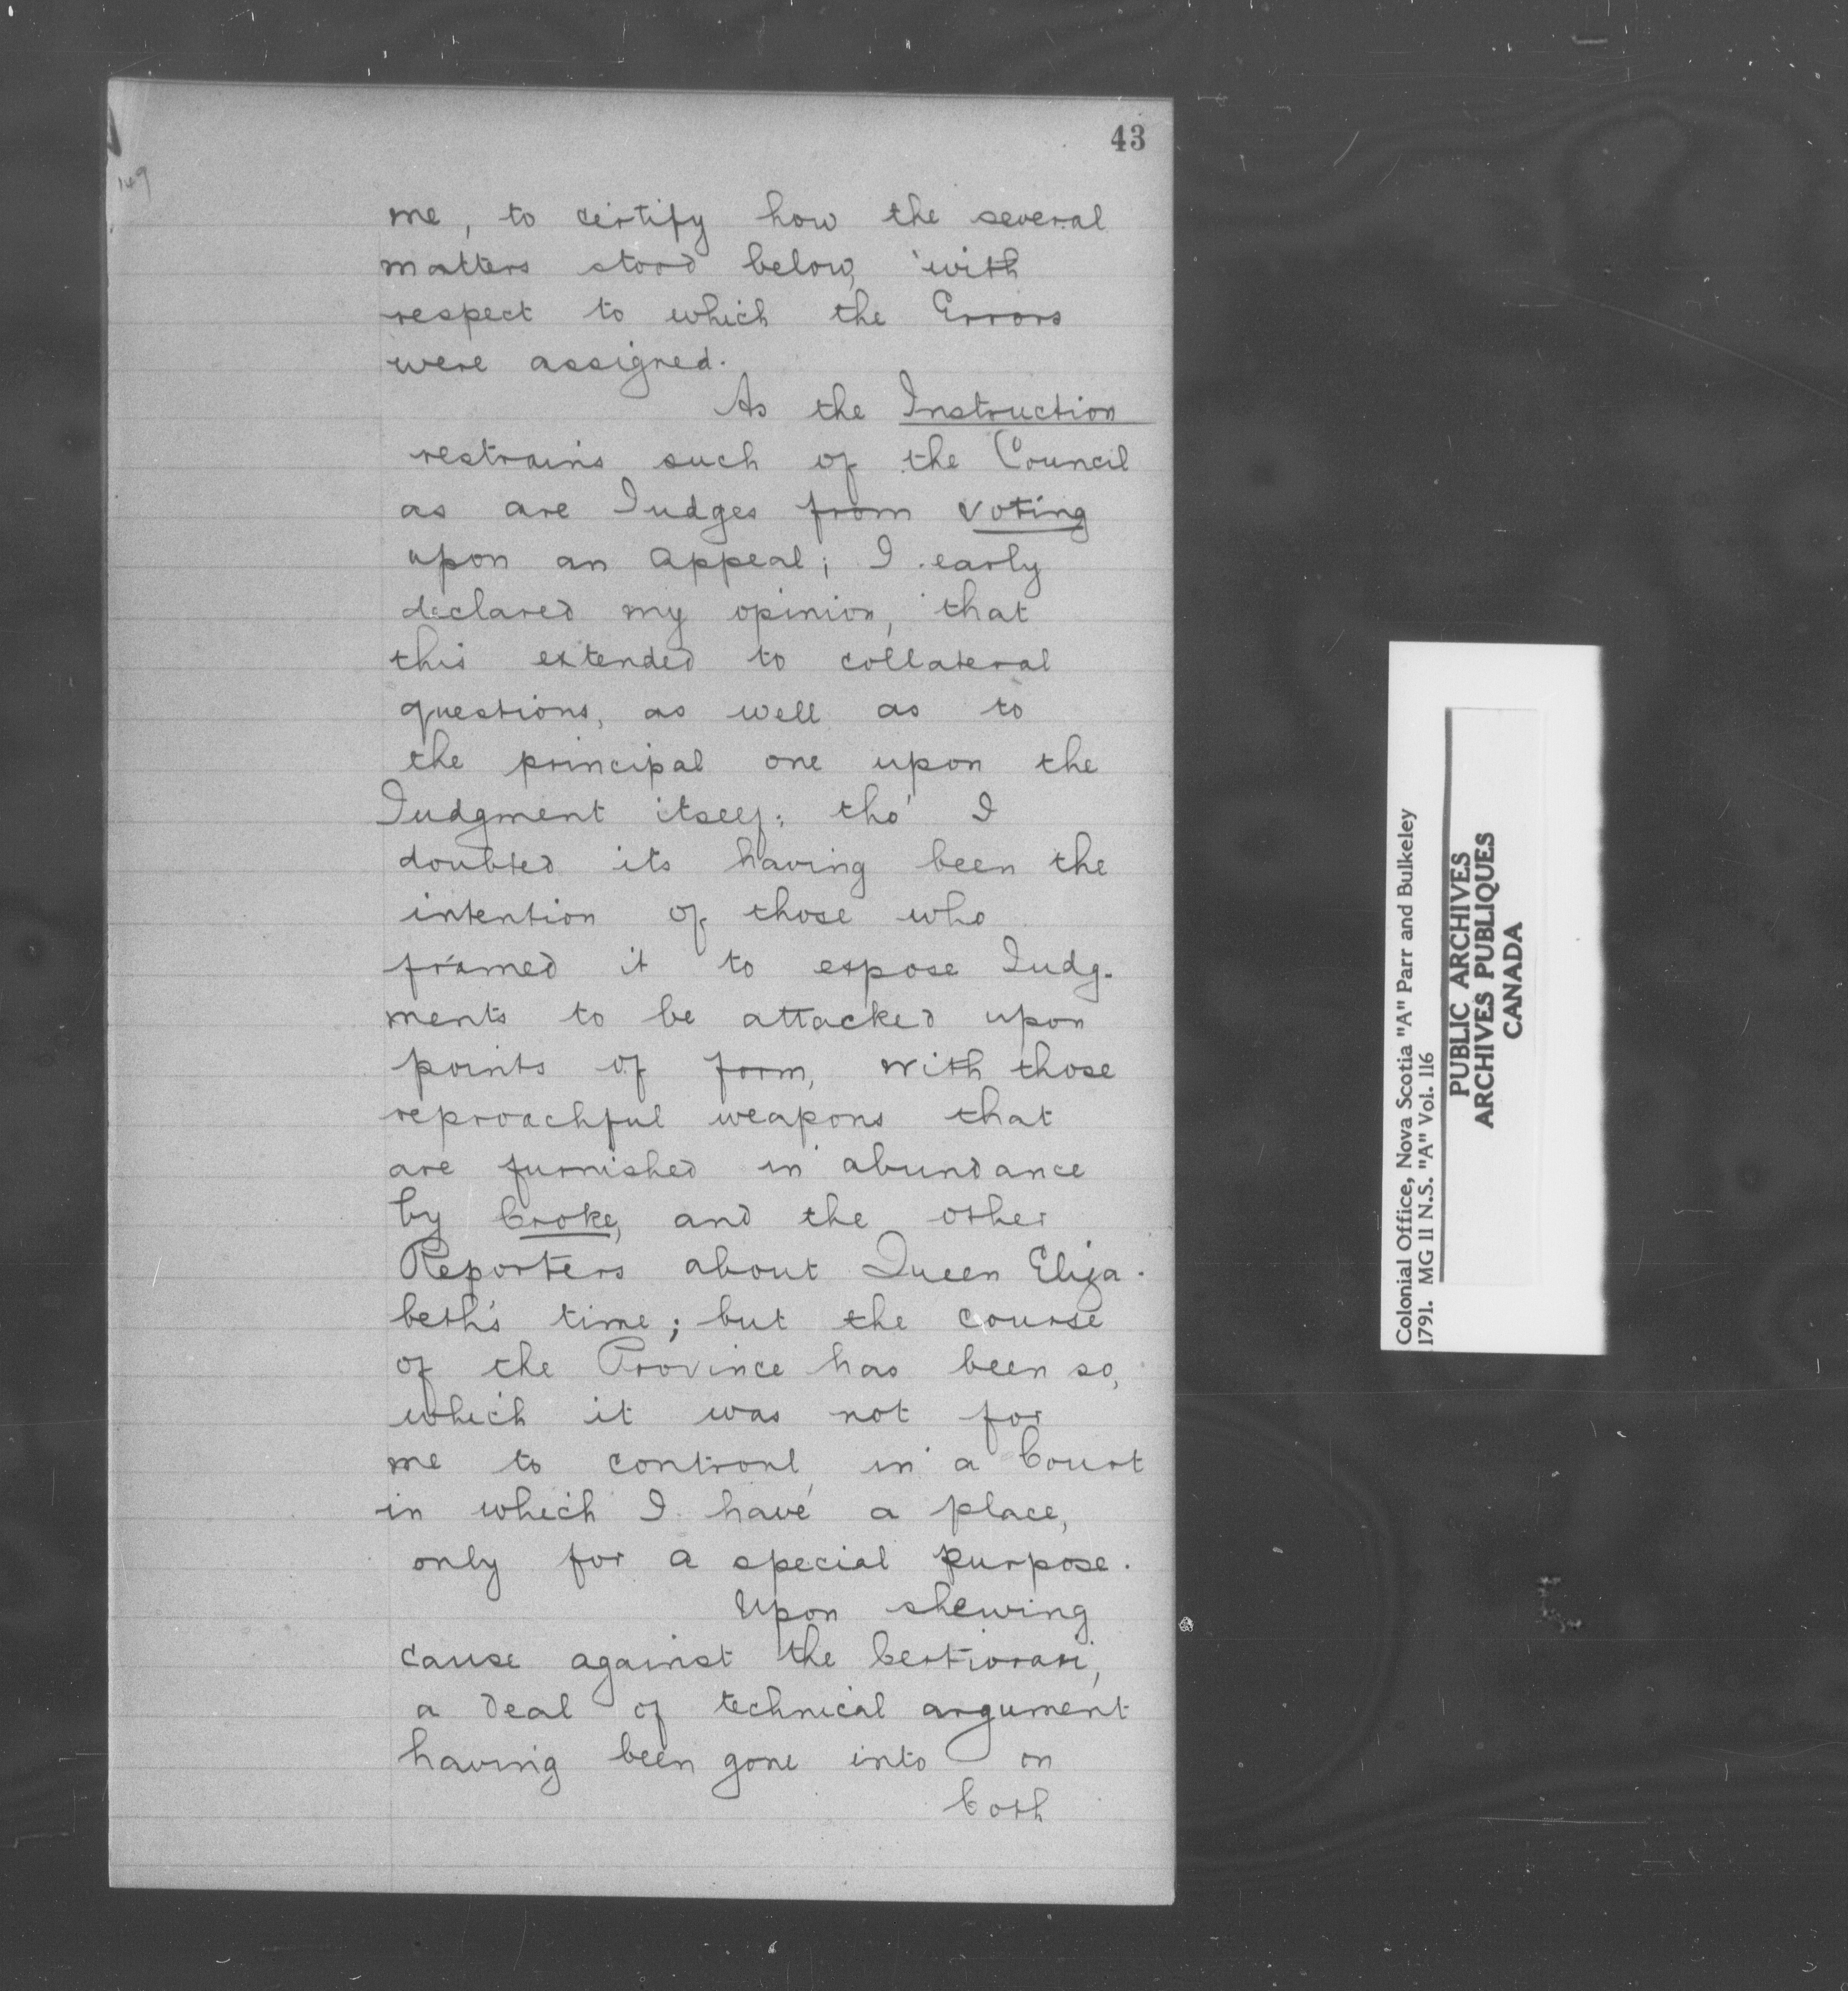 43
149
me, to certify how the several
matters stood below, with
respect to which the Errors
were assigned.
As the Instruction
restrains such of the Council
as are Judges from voting
upon an Appeal; I early
declared my opinion, that
this extended to collateral
questions, as well as to
the principal one upon the
Judgment itself; tho' I
doubted its having been the
intention of those who
framed it to expose Judg-
ments to be attacked upon
points of form, with those
reproachful weapons that
are furnished in abundance
by Croke, and the other
Reporters about Queen Eliza-
beth's time; but the course
of the Province has been so,
which it was not for
me to controul, in a Court
in which I have a place,
only for a special purpose.
Upon shewing
cause against the Certiorari,
a deal of technical argument
having been gone into on
both
Colonial Office, Nova Scotia "A" Parr and Bulkeley
1791. MG 11 N.S. "A" Vol. 116
PUBLIC ARCHIVES
ARCHIVES PUBLIQUES
CANADA